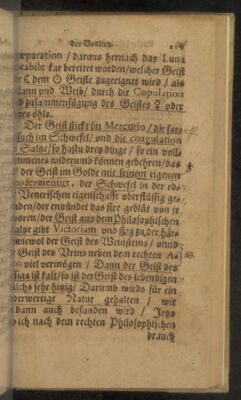 der Uralten
paration / daraus hernach das Luna
tabile kan bereitet worden / welcher Geist
r ☾ dem ☉ Geiste zugeeignet wird / als
ann und Weib / durch die Copulation
d zusammenfügung des Geistes ☿ oder
nes öhls.
Der Geist stickt im Mercurio / die far
such im Schwefel / und die coagulation
Salze / so hastu drey dinge / so ein voll
mmenes widerumb können gebehren / das
der Geist im Golde mit seinem eignen
fermentirt, der Schwefel in der
Venerischen eigenschafft uberflüssig
nden / der mündet das fixe geblüt von
boren / der Geist aus dem Philosophischen
alze gibt Victoriam und sieg zu der
wiewol der Geist des Weinsteins /
Geist des Vrins neben dem rechten
to viel vermögen / Dann der Geist des
figs ist kalt / so ist der Geist des lebendigen
lchs sehr hitzig / Darumb wirds für ein
erwertige Natur gehalten / wie
dann auch befunden wird /
ich nach dem rechten Philosophischen
brauch